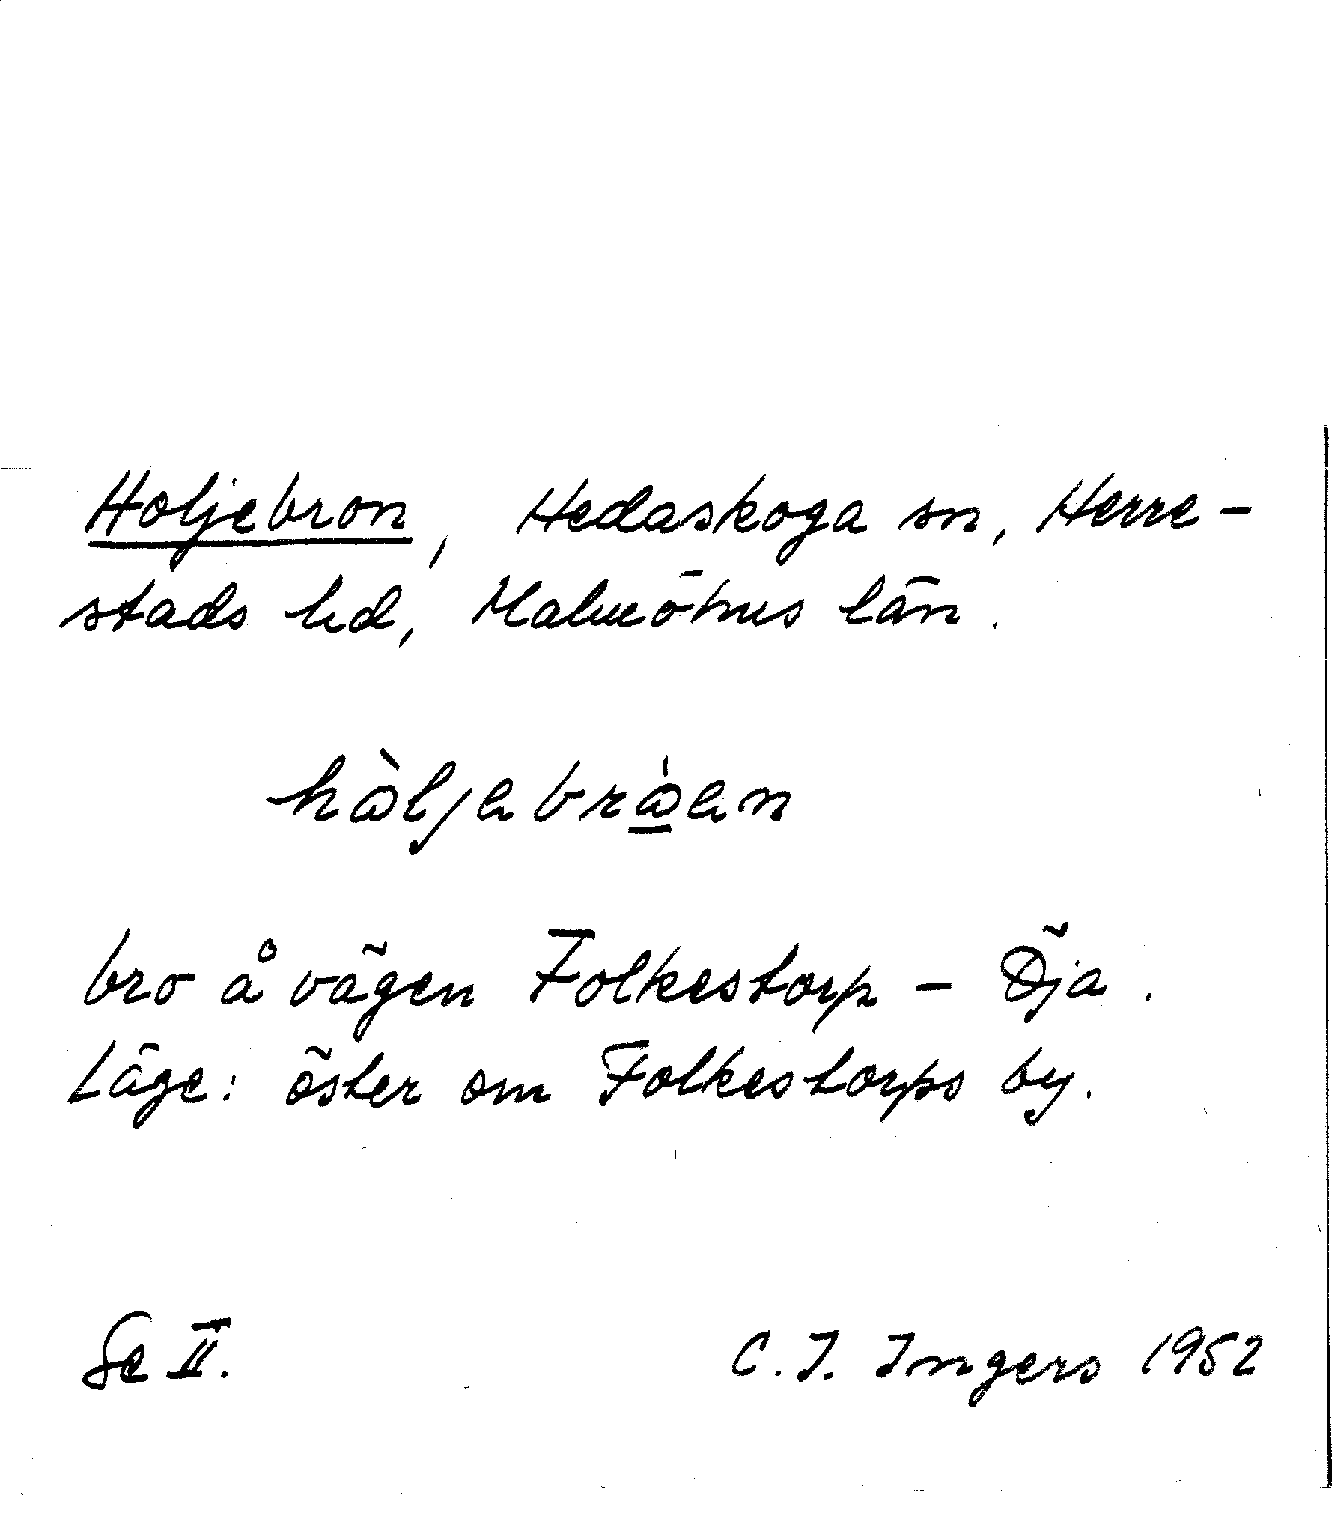 Holjebron, Hedaskoga sn, Herre-
stads hd, Malmöhus län.
bro å vägen Folkestorp - Öja.
Läge: öster om Folkestorps by.
Se II.
C. I. Ingers 1952